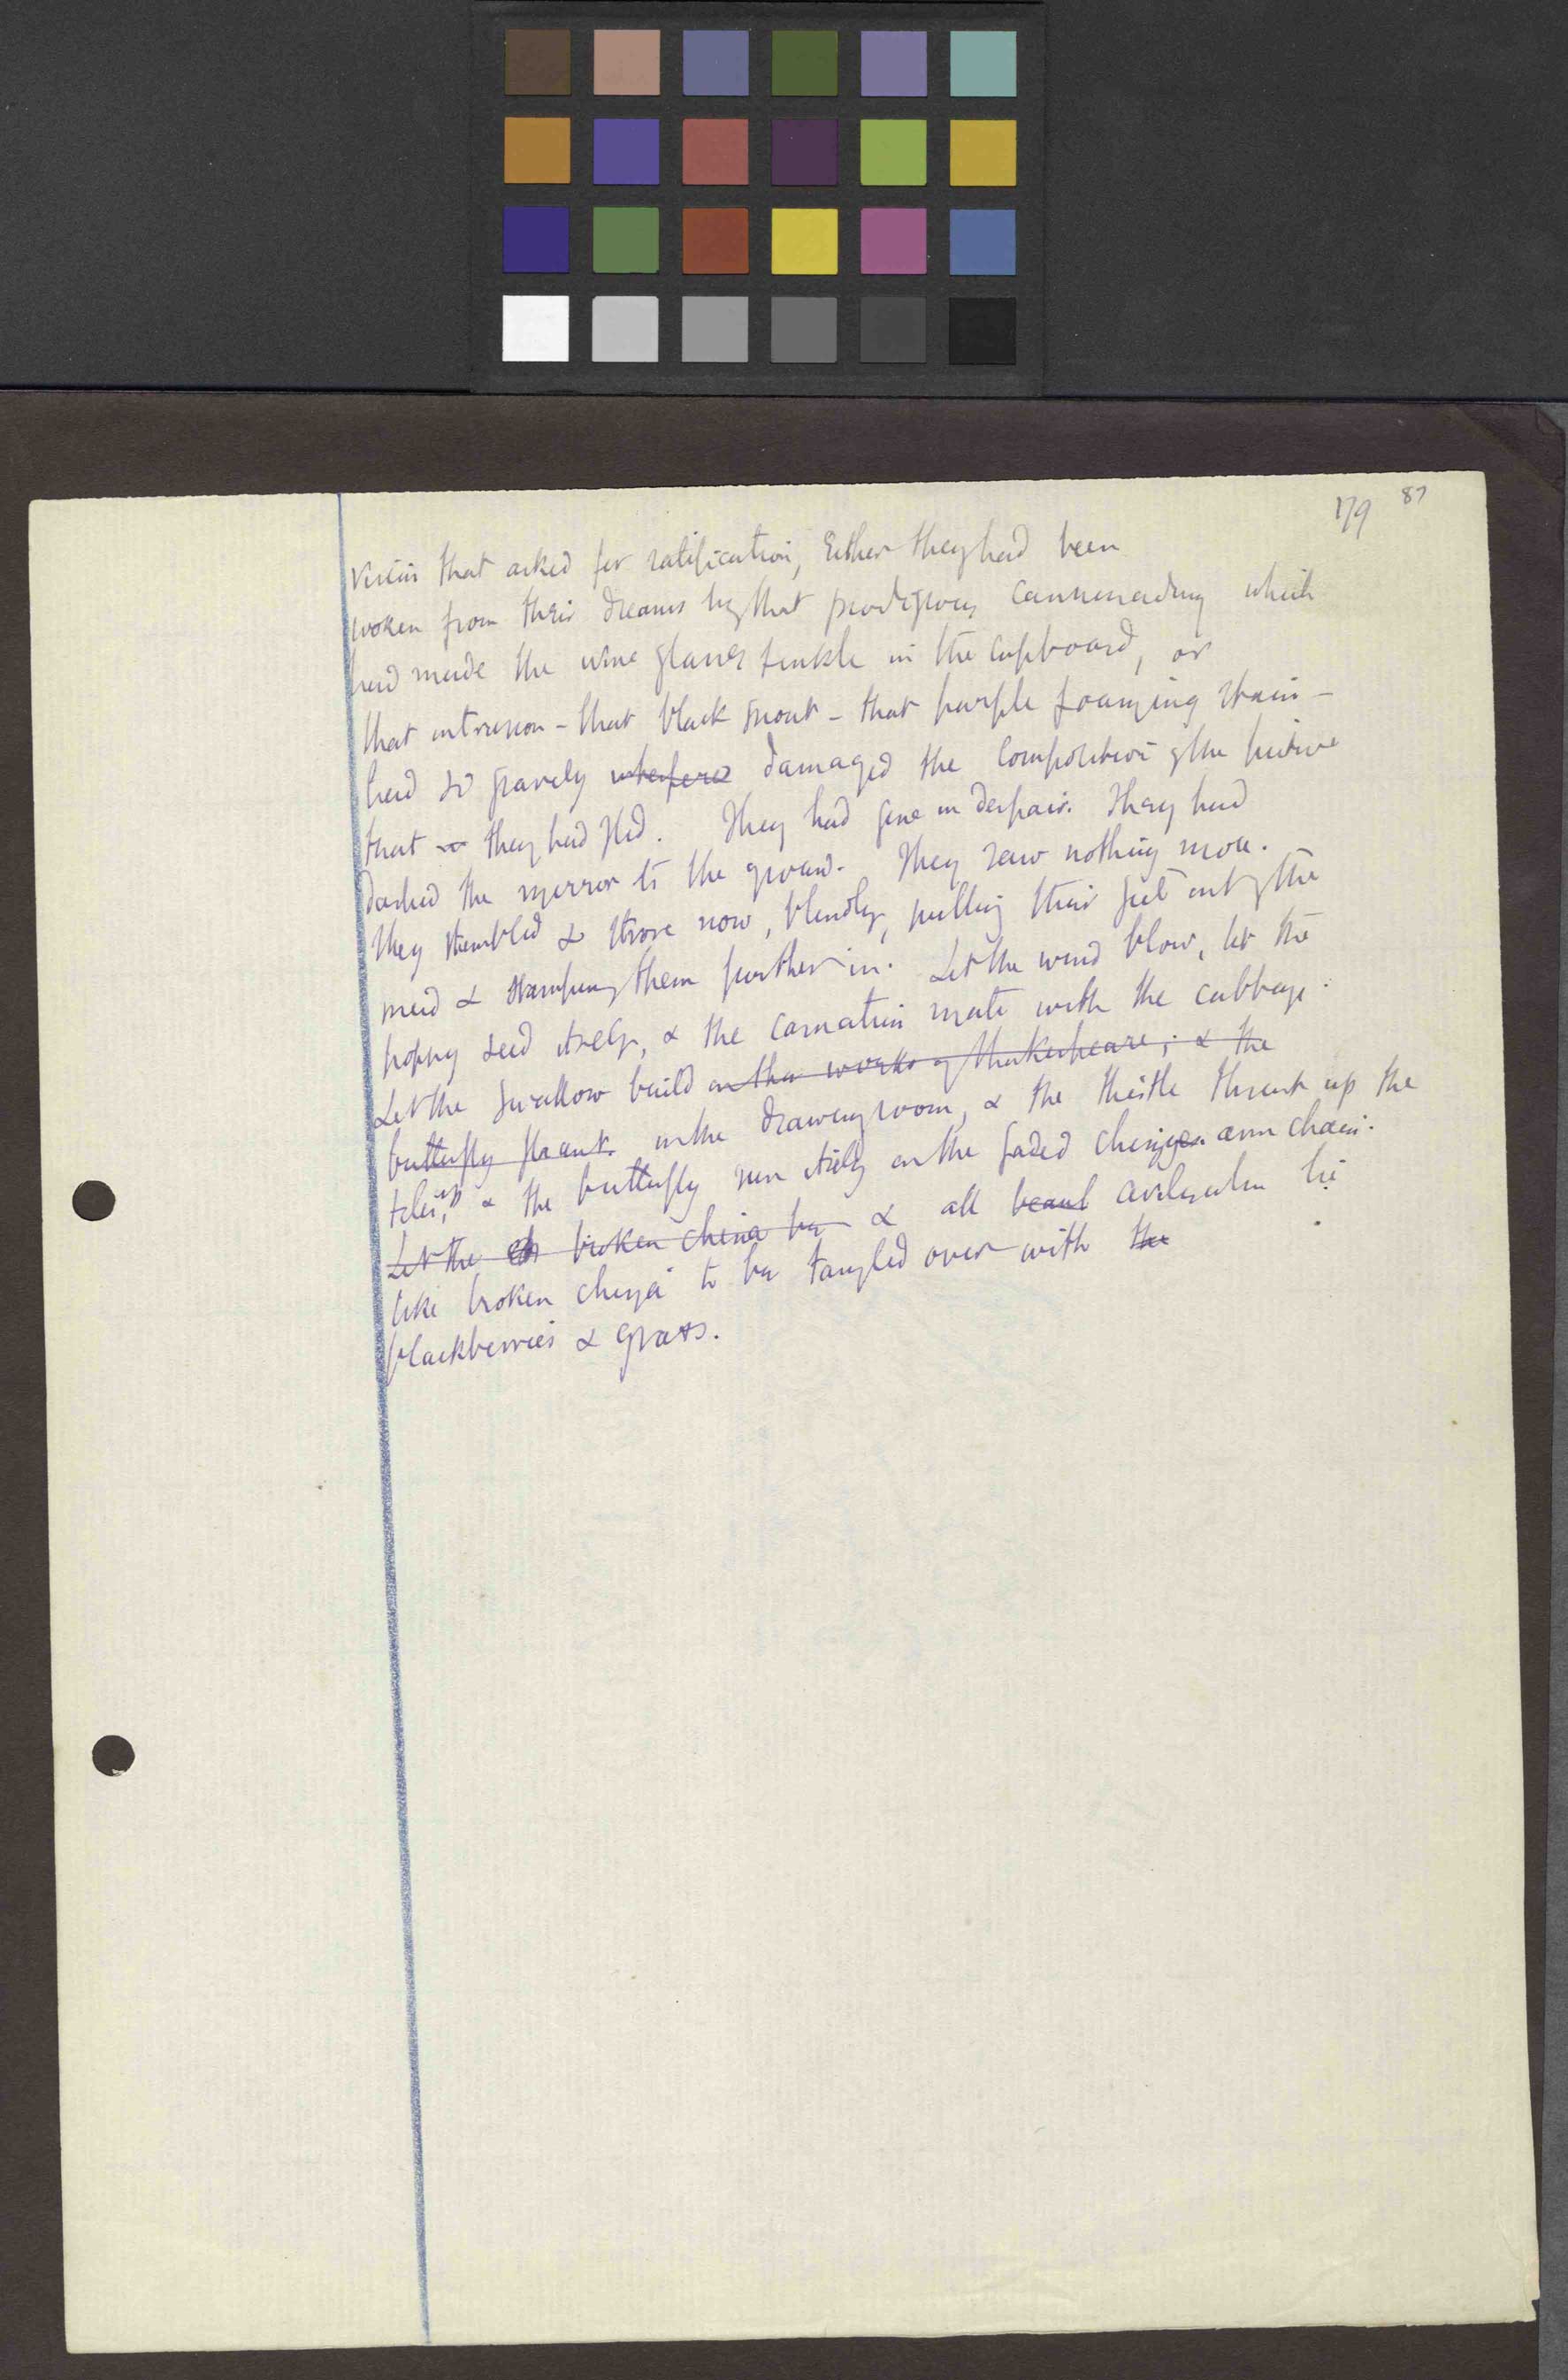 179 87
vision that asked for ratification, Either they had been
woken from their dreams by that prodigious cannonading which
had made the wine glasses tinkle in the cupboard, or
that intrusion - that black snout - that purple foaming stain -
had so gravely interfered damaged the composition of the picture
that they had fled. They had gone in despair. They had
dashed the mirror to the ground. They saw nothing more.
They stumbled & strove now, blindly, pulling their feet out of the
mud & stamping them further in. Let the wind blow, let the
poppy seed itself, & the carnation mate with the cabbage.
Let the swallow build on the works of Shakespeare; & the
butterfly flaunt. in the drawing room, & the thistle thrust up the
tiles, & the butterfly sun itself on the faded arm chair.
Let the broken china be & all beaut civilisation lie
like broken china to be tangled over with the
blackberries & grass.